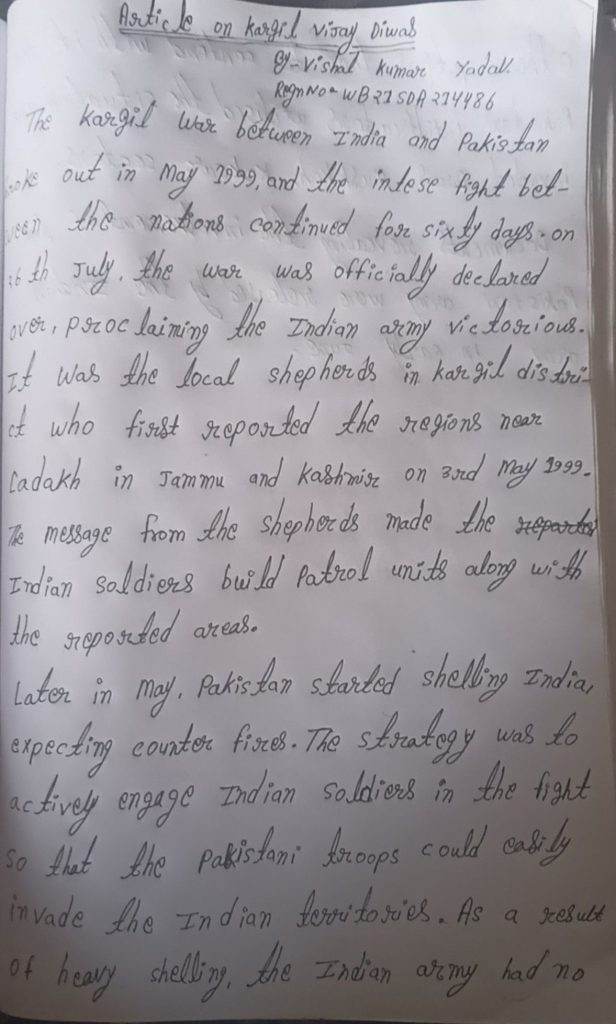 Article on Kargil Vijay Diwas
By-Vishal Kumar Yadav.
Regn No- WB21SDA214486
The Kargil War between India and Pakistan
roke out in May 1999, and the intese fight bet-
ween the nations continued for sixty days. on
26th July, the war was officially declared
over, proclaiming the Indian army victorious.
It was the local shepherds in kargil distri-
ct who first reported the regions near
Ladakh in Jammu and Kashmir on 3rd May 1999.
The message from the shepherds made the
Indian soldiers build patrol units along with
the reported areas.
Later in May, Pakistan started shelling India,
expecting counter fires. The strategy was to
actively engage Indian soldiers in the fight
so that the Pakistani troops could easily
invade the Indian territories. As a result
of heavy shelling, the Indian army had no